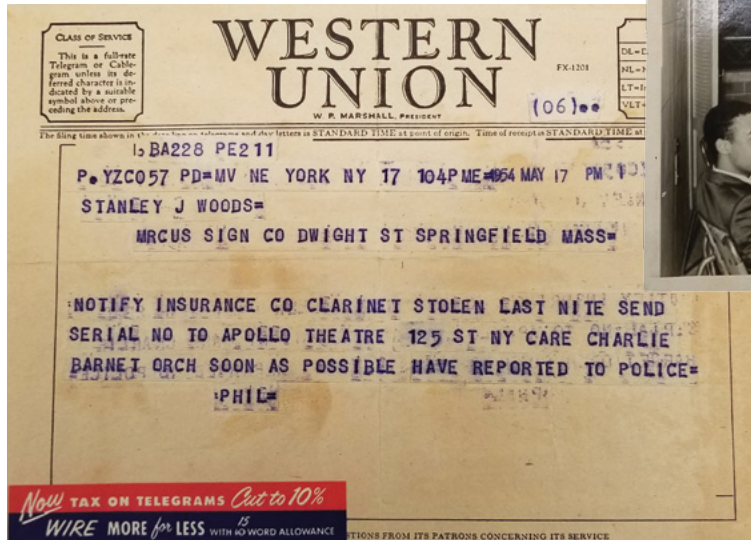 CLASS OF SERVICE
This is a full-rate
Telegram or Cable-
gram unless its de-
ferred character is in-
dicated by a suitable
symbol above or pre-
ceding the address.
WESTERN
UNION
W. P. MARSHALL, PRESIDENT
FX-1201
(06)
DL=
NL=
LT=
VLT=
The filing time shown in the date line on telegrams and day letters is STANDARD TIME at point of origin. Time of receipt is STANDARD TIME at
BA228 PE211
P.YZC057 PD=MV NE YORK NY 17 104P ME= 1954 MAY 17 PM
STANLEY J WOODS=
MRCUS SIGN CO DWIGHT ST SPRINGFIELD MASS=
NOTIFY INSURANCE CO CLARINET STOLEN LAST NITE SEND
SERIAL NO TO APOLLO THEATRE 125 ST NY CARE CHARLIE
BARNET ORCH SOON AS POSSIBLE HAVE REPORTED TO POLICE=
PHIL=
Now TAX ON TELEGRAMS Cut to 10%
WIRE MORE for LESS WITH 15 WORD ALLOWANCE
STIONS FROM ITS PATRONS CONCERNING ITS SERVICE